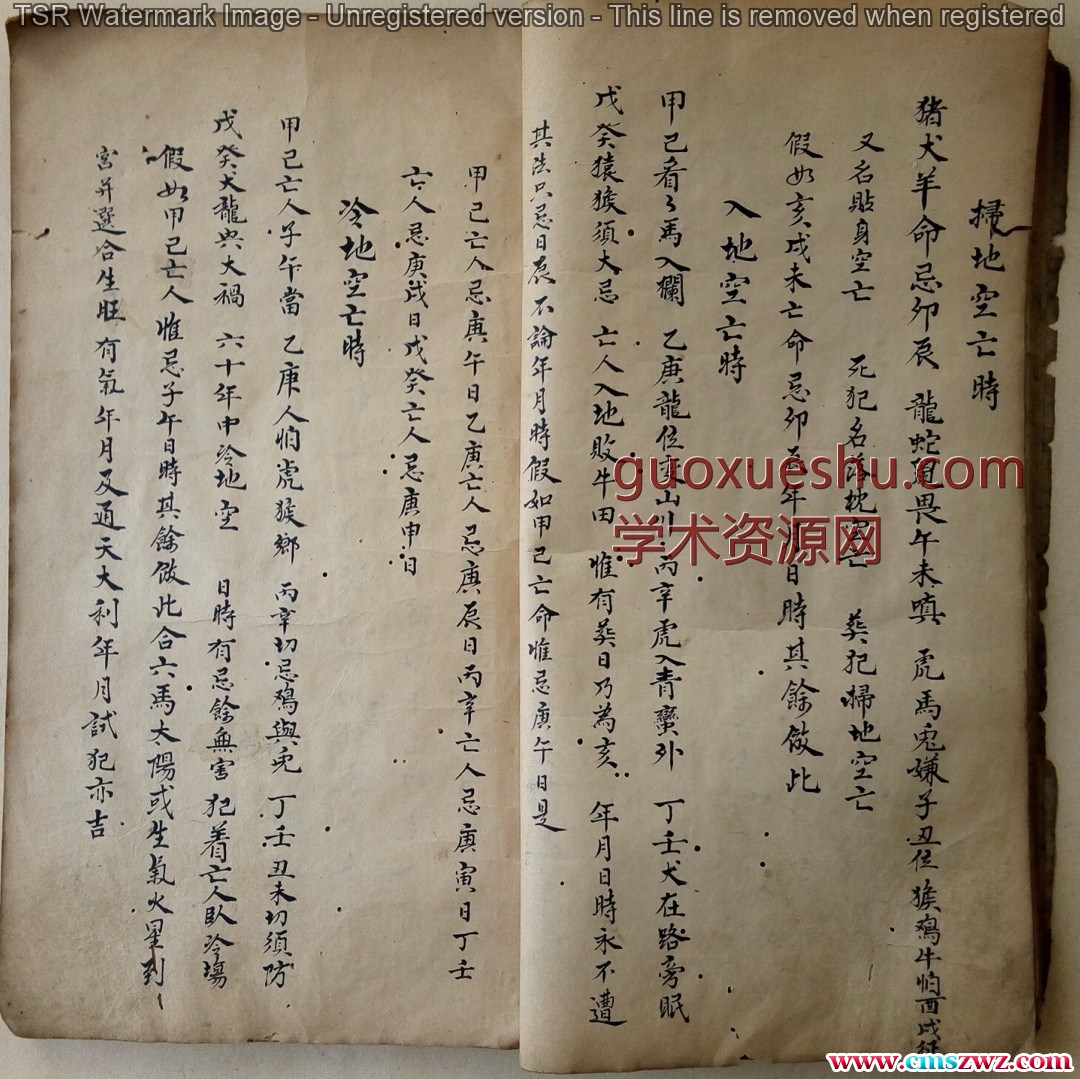 TSR Watermark Image - Unregistered version - This line is removed when registered
掃地空亡時
猪犬羊命忌卯辰 龍蛇鼠畏午未嗔 虎馬兎嫌子丑位 猴鴉牛怕酉戌
又名貼身空亡 死犯名落枕空亡 葬犯掃地空亡
假如亥戌未亡命忌卯辰年月日時其餘倣此
入地空亡時
甲己看〻馬入欄 乙庚龍位在山川 丙辛虎入青蠻外 丁壬犬在路旁眠
戊癸猿猴須大忌 亡人入地敗牛田 惟有葬日乃為亥 年月日時永不遭
其法只忌日辰不論年月時假如甲己亡命惟忌庚午日是
甲己亡人忌庚午日乙庚亡人忌庚辰日丙辛亡人忌庚寅日丁壬
亡人忌庚戌日戊癸亡人忌庚申日
冷地空亡時
甲己亡人子午當 乙庚人怕虎猴鄉 丙辛切忌鴉與兎 丁壬丑未切須防
戊癸犬龍興大禍 六十年中冷地空 日時有忌餘無害 犯着亡人臥冷塲
假如甲己亡人惟忌子午日時其餘倣此合六馬太陽或生氣火星到
宮并選合生旺有氣年月及通天大利年月試犯亦吉
guoxueshu.com
学术资源网
www.cmszwz.com